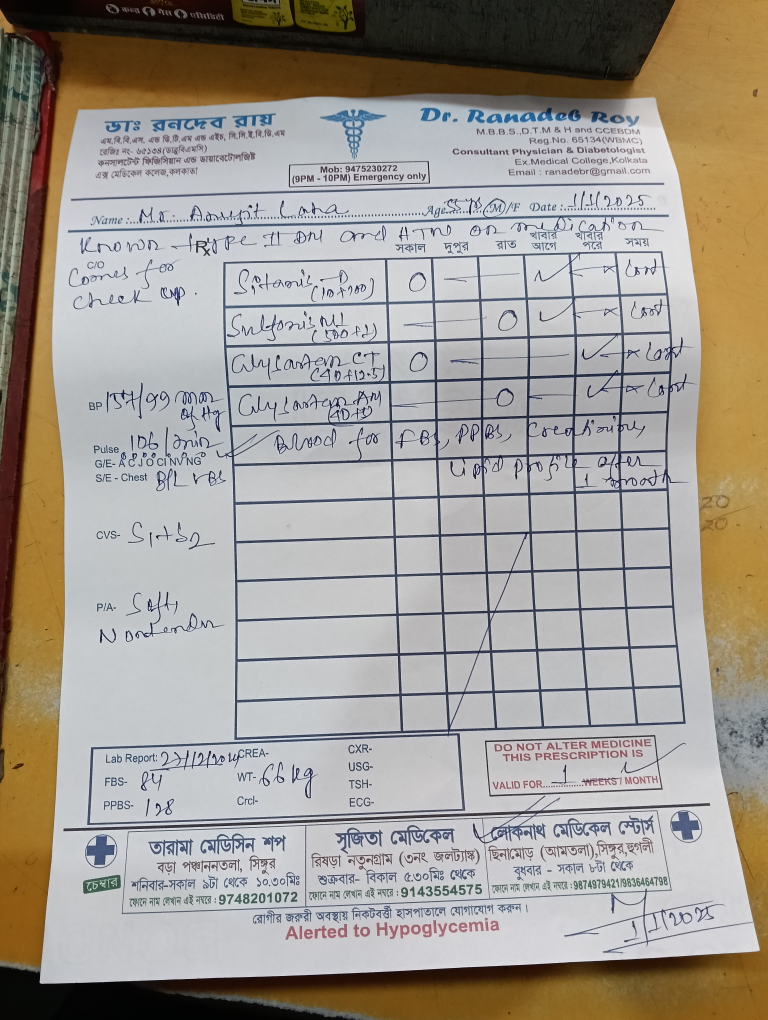 কম • পেন • এসিডিটি
ডাঃ রনদেব রায়
এম.বি.বি.এস, এন্ড ডি.টি.এম এন্ড এইচ, সি.সি.ই.বি.ডি.এম
রেজিঃ নং- ৬৫১৩৪(ডাব্লুবিএমসি)
কনসালটেন্ট ফিজিসিয়ান এন্ড ডায়াবেটোলজিষ্ট
এক্স মেডিকেল কলেজ,কলকাতা
Mob: 9475230272
(9PM - 10PM) Emergency only
Dr. Ranadeb Roy
M.B.B.S.,D.T.M & H and CCEBDM
Reg.No. 65134(WBMC)
Consultant Physician & Diabetologist
Ex.Medical College,Kolkata
Email : ranadebr@gmail.com
Name: Mr. Laha Age M/F Date : 1/1/2025
Known Type II DM and HTN on medication
Rx সকাল দুপুর রাত খাবার আগে খাবার পরে সময়
C/O
Comes for
check up.
O — ✓ — × Cont
— O ✓ — × Cont
O — ✓ × Cont
— O — ✓ × Cont
BP 157/99 mm of Hg
Pulse 106/min
Blood for FBS, PPBS, Creatinine,
Lipid profile after 1 month
G/E- A C J O CI NV NG
S/E - Chest B/L VBS
CVS- S1+S2
P/A- Soft,
Nontender
Lab Report: 27/12/2024 CREA- CXR-
FBS- 84 WT- 66 kg USG-
TSH-
PPBS- 128 Crcl- ECG-
DO NOT ALTER MEDICINE
THIS PRESCRIPTION IS
VALID FOR 1 WEEKS / MONTH
চেম্বার
তারামা মেডিসিন শপ
বড়া পঞ্চাননতলা, সিঙ্গুর
শনিবার-সকাল ৯টা থেকে ১০.৩০মিঃ
ফোনে নাম লেখান এই নম্বরে : 9748201072
সৃজিতা মেডিকেল
রিষড়া নতুনগ্রাম (৩নং জলট্যাঙ্ক)
শুক্রবার- বিকাল ৫.৩০মিঃ থেকে
ফোনে নাম লেখান এই নম্বরে : 9143554575
লোকনাথ মেডিকেল স্টোর্স
ছিনামোড় (আমতলা),সিঙ্গুর,হুগলী
বুধবার - সকাল ৮টা থেকে
ফোনে নাম লেখান এই নম্বরে : 9874979421/9836464798
রোগীর জরুরী অবস্থায় নিকটবর্তী হাসপাতালে যোগাযোগ করুন।
Alerted to Hypoglycemia
1/1/2025